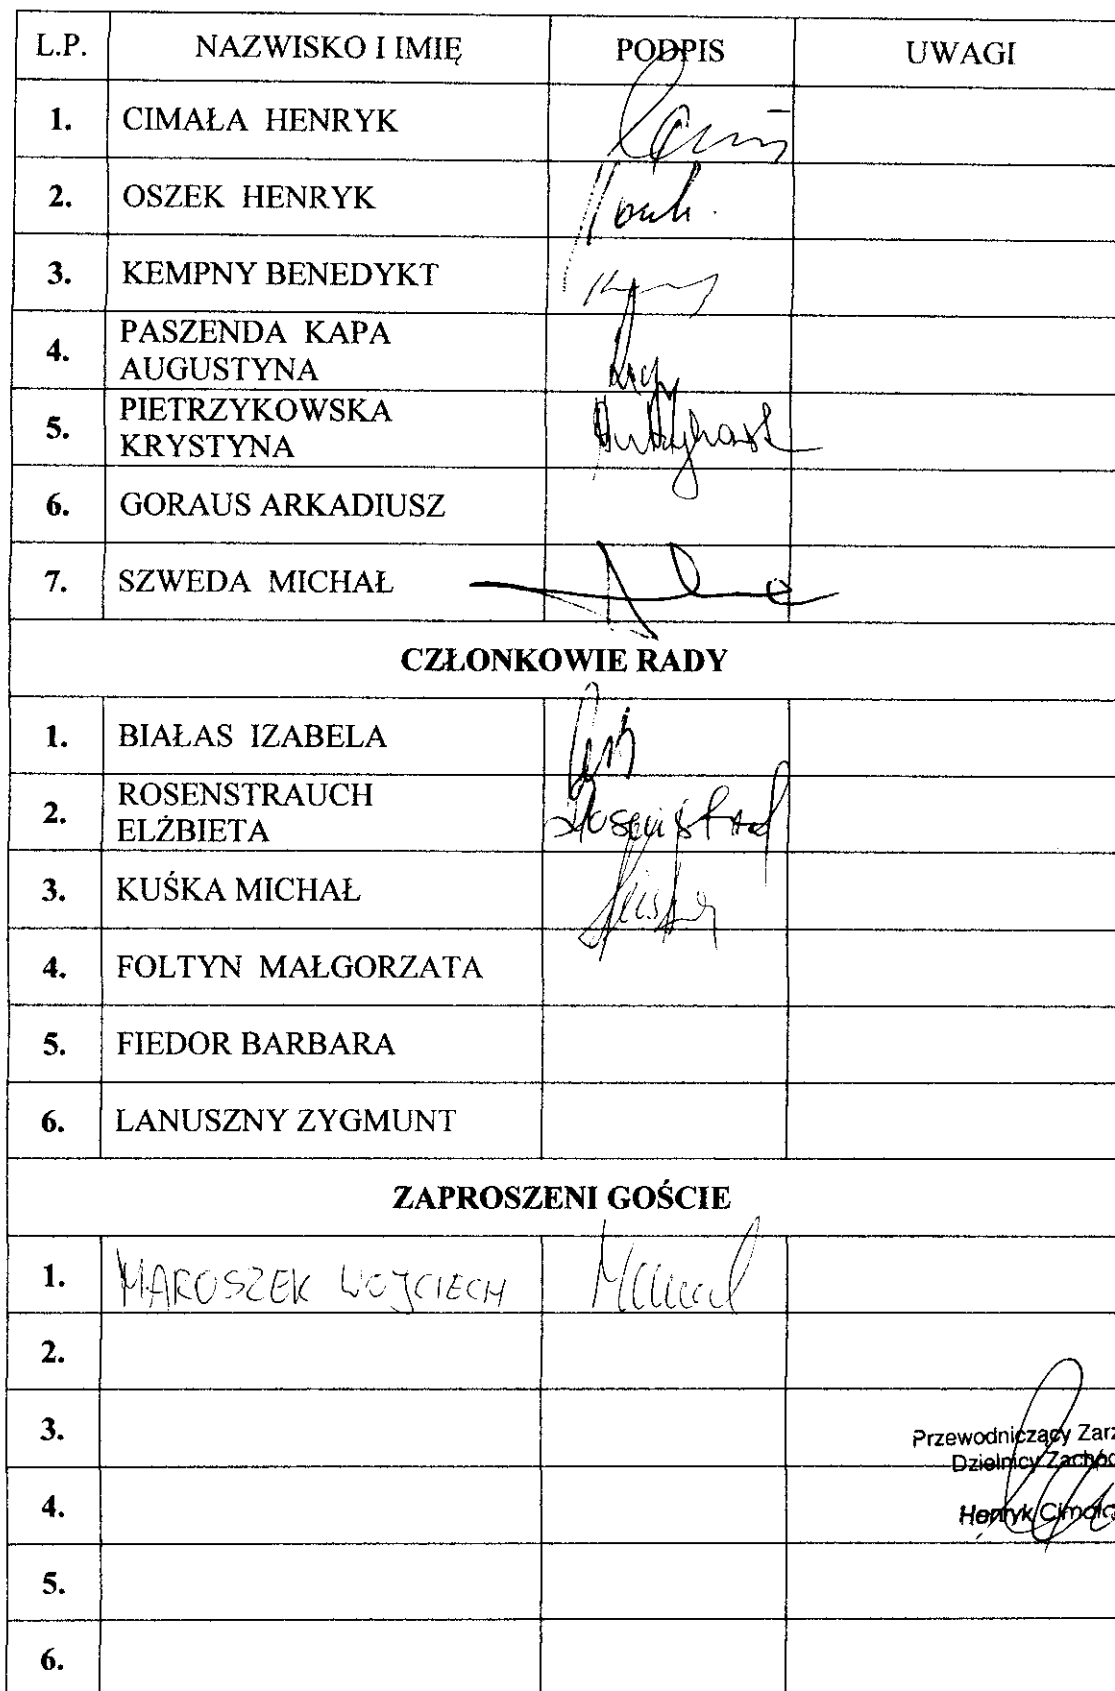 L.P. NAZWISKO I IMIĘ PODPIS UWAGI
1. CIMAŁA HENRYK
2. OSZEK HENRYK
3. KEMPNY BENEDYKT
4. PASZENDA KAPA
AUGUSTYNA
5. PIETRZYKOWSKA
KRYSTYNA
6. GORAUS ARKADIUSZ
7. SZWEDA MICHAŁ
CZŁONKOWIE RADY
1. BIAŁAS IZABELA
2. ROSENSTRAUCH
ELŻBIETA
3. KUŚKA MICHAŁ
4. FOLTYN MAŁGORZATA
5. FIEDOR BARBARA
6. LANUSZNY ZYGMUNT
ZAPROSZENI GOŚCIE
1. MAROSZEK WOJCIECH
2.
3.
Przewodniczący Zarz
Dzielnicy Zachod
4.
Henryk Cimała
5.
6.